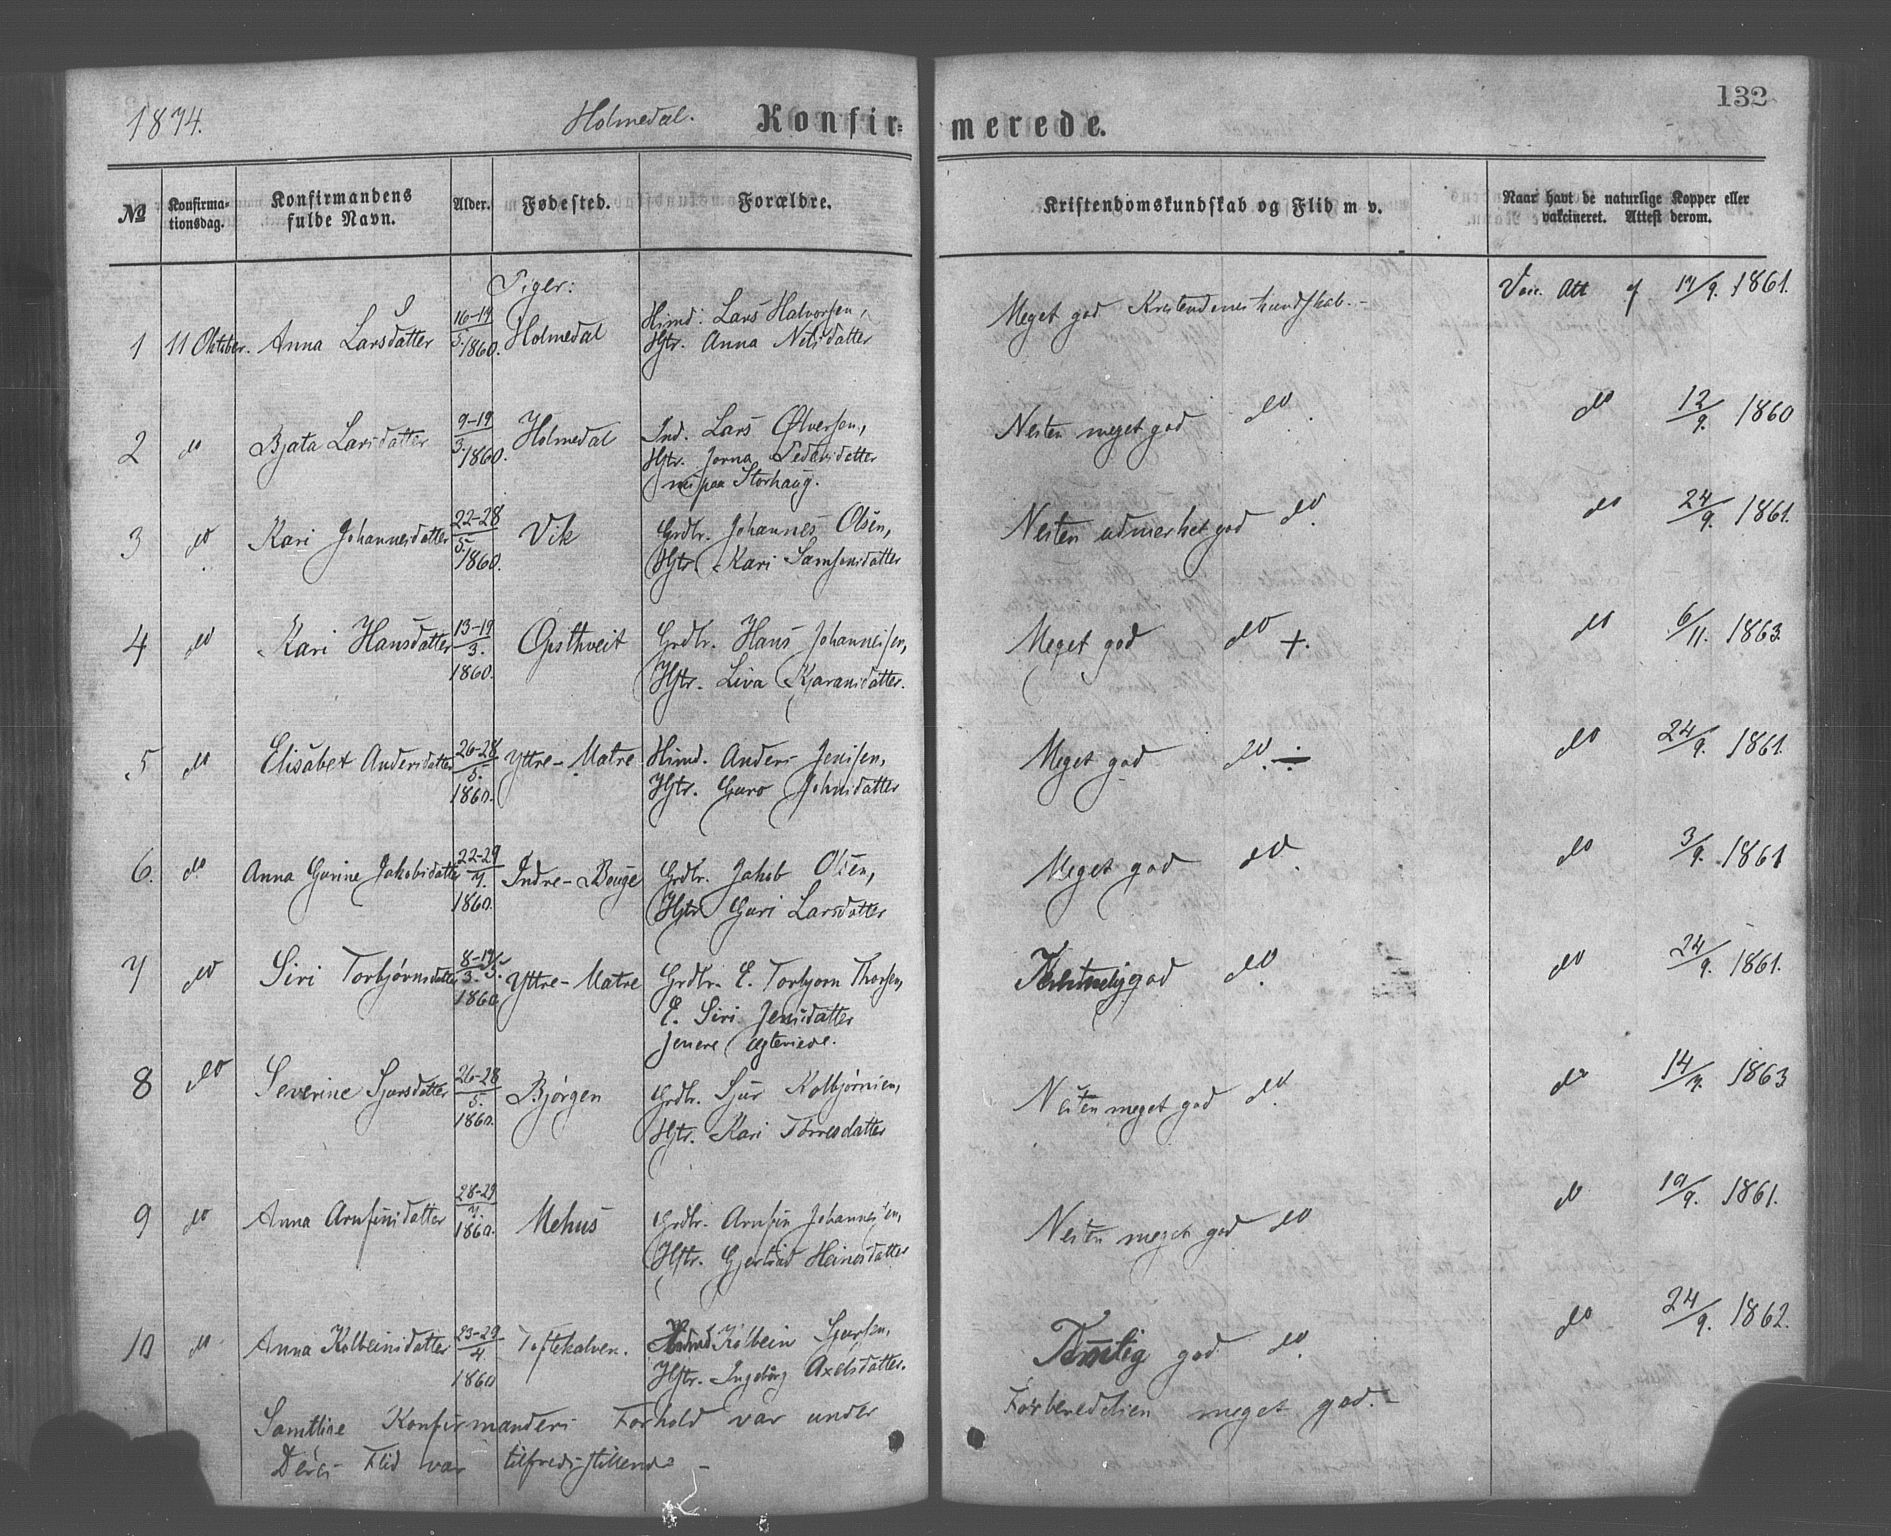 1874. Holmedal. Konfir- merede. 132
№ Konfirma- tionsdag. Konfirmandens fulde Navn. Alder. Fødested. Forældre. Kristendomskundskab og Flid m v. Naar havt de naturlige Kopper eller vakcineret. Attest derom.
Piger:
1 11 Oktober. Anna Larsdatter 16-19/5. 1860. Holmedal Hsmd. Lars Halvorsen, Meget god Kristendomskundskab. - Vac. Att af 17/9. 1861.
Hstr. Anna Nilsdatter
2 do Bjata Larsdatter 9-19/3. 1860. Holmedal Ind. Lars Ølversen, Nesten meget god do. do 12/9. 1860
Hstr. Jorna Pedersdatter
nu paa Storhaug.
3 do Kari Johannesdatter 22-28/5. 1860. Vik Grdbr. Johannes Olsen, Nesten udmerket god do. do 24/9. 1861.
Hstr. Kari Samsonsdatter
4 do Kari Hansdatter 13-19/3. 1860. Opsthveit Grdbr. Hans Johannessen, Meget god do +. do 6/11. 1863.
Hstr. Liva Kjaransdatter.
5 do Elisabet Andersdatter 26-28/5. 1860. Yttre-Matre Hsmd. Anders Jensen, Meget god do. ÷ do 24/9. 1861.
Hstr. Guro Johnsdatter
6. do Anna Gurine Jakobsdatter 22-29/7. 1860. Indre-Bouge Grdbr. Jakob Olsen, Meget god do. do 3/9. 1861
Hstr. Guri Larsdatter
7 do Siri Torbjørnsdatter 1860 Yttre-Matre Grdbr. E. Torbjorn Thorsen, god do. do 24/9. 1861.
E. Siri Jensdatter
senere ægteviede.
8 do Severine Sjursdatter 26-28/5. 1860. Bjørgen Grdbr. Sjur Kolbjørnsen, Nesten meget god do. do 14/7. 1863
Hstr. Kari Torresdatter
9 do Anna Arnfinsdatter 28-29/7. 1860. Mehus Grdbr. Arnfin Johannessen, Nesten meget god do do 19/9. 1861.
Hstr. Gjertrud Heinesdatter
10 do Anna Kolbeinsdatter 23-29/4 1860 Toftekalven. Kolbein Sjursen, Temelig god do. do 24/9. 1862.
Hstr. Ingebørg Axelsdatter.
Samtlige Konfirmanders Forhold var under Forberedelsen meget god. -
Deres Flid var tilfredsstillende -